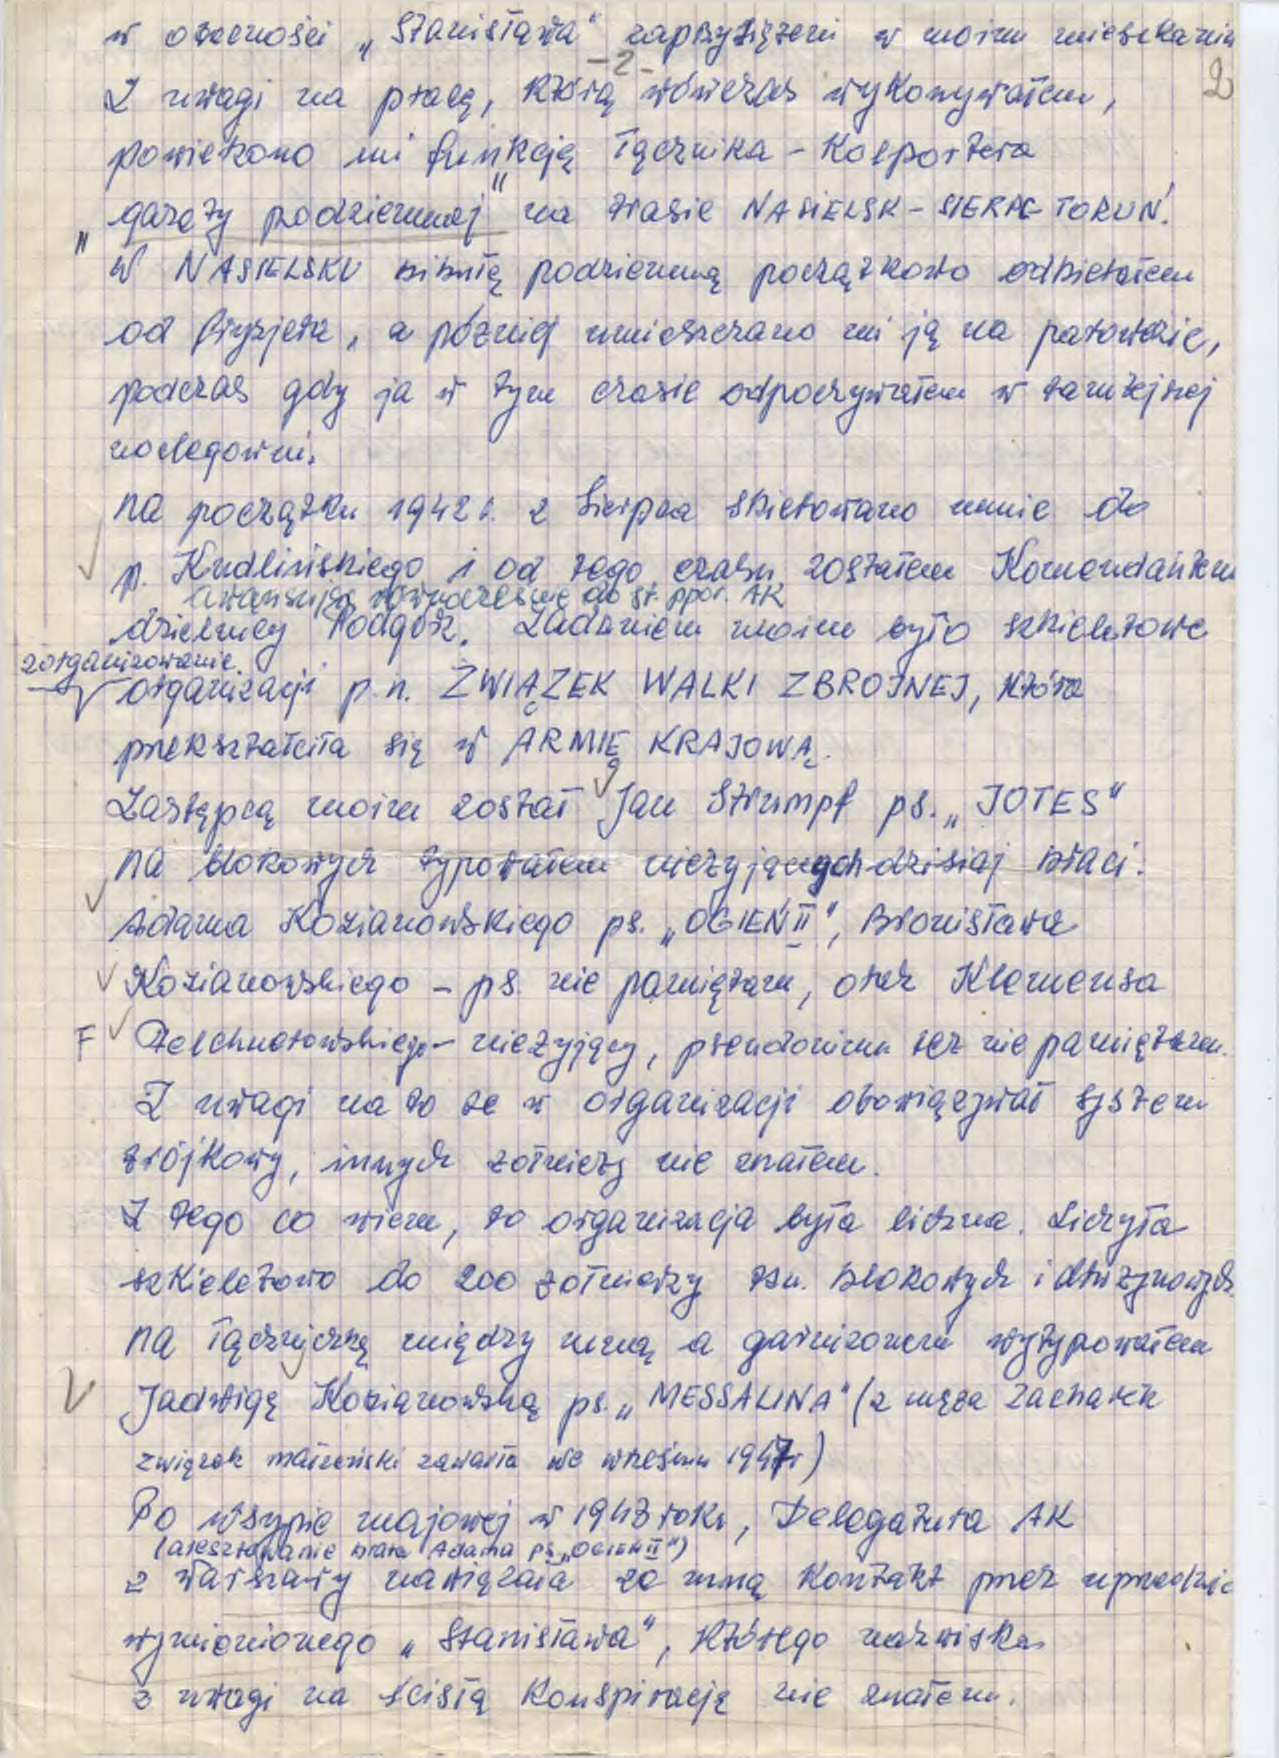 w obecności „Stanisława" zaprzysiężeni w moim mieszkaniu
-2-
2
Z uwagi na pracę, którą wówczas wykonywałem,
powierzono mi funkcję łącznika - Kolportera
„gazety podziemnej" na trasie NASIELSK - SIERPC - TORUŃ.
W NASIELSKU bibułę podziemną początkowo odbierałem
od fryzjera, a później umieszczano mi ją na parowozie,
podczas gdy ja w tym czasie odpoczywałem w tamtejszej
noclegowni.
Na początku 1942 r. z Sierpca skierowano mnie do
p. Kudlińskiego i od tego czasu zostałem Komendantem
awansując równocześnie do st. ppor. AK
dzielnicy Podgórz. Zadaniem moim było szkieletowe
zorganizowanie
organizacji p.n. ZWIĄZEK WALKI ZBROJNEJ, która
przekształciła się w ARMIĘ KRAJOWĄ.
Zastępcą moim został Jan Strumpf ps. „JOTES"
Na blokowych typowałem nieżyjących dzisiaj braci:
Adama Kozianowskiego ps. „OGIEŃ II", Bronisława
Kozianowskiego - ps. nie pamiętam, oraz Klemensa
F Felchnerowskiego - nieżyjący, pseudonimu też nie pamiętam.
Z uwagi na to że w organizacji obowiązywał system
trójkowy, innych żołnierzy nie znałem.
Z tego co wiem, to organizacja była liczna. Liczyła
szkieletowo do 200 żołnierzy tzn. blokowych i drużynowych.
Na łączniczkę między mną a garnizonem wytypowałem
Jadwigę Kozianowską ps. „MESSALINA" (z męża Zacharek
związek małżeński zawarła we wrześniu 1947r)
Po wsypie majowej w 1943 roku, Delegatura AK
(aresztowanie brata Adama ps. „OGIEŃ II")
z Warszawy nawiązała ze mną kontakt przez uprzednio
wymienionego „Stanisława", którego nazwiska
z uwagi na ścisłą konspirację nie znałem.